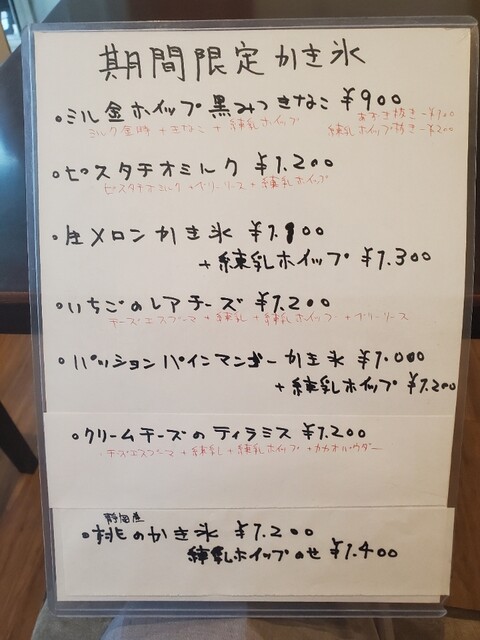 期間限定かき氷
•ミル金ホイップ黒みつきなこ ¥900
ミルク金時+きなこ+練乳ホイップ
あずき抜き-¥100
練乳ホイップ抜き-¥200
•ピスタチオミルク ¥1.200
ピスタチオミルク+ベリーソース+練乳ホイップ
•生メロンかき氷 ¥1.100
+練乳ホイップ ¥1.300
•いちごのレアチーズ ¥1.200
チーズエスプーマ+練乳+練乳ホイップ+ベリーソース
•パッションパインマンゴーかき氷 ¥1.000
+練乳ホイップ ¥1.200
•クリームチーズのティラミス ¥1.200
チーズエスプーマ+練乳+練乳ホイップ+カカオパウダー
静岡産
•桃のかき氷 ¥1.200
練乳ホイップのせ ¥1.400